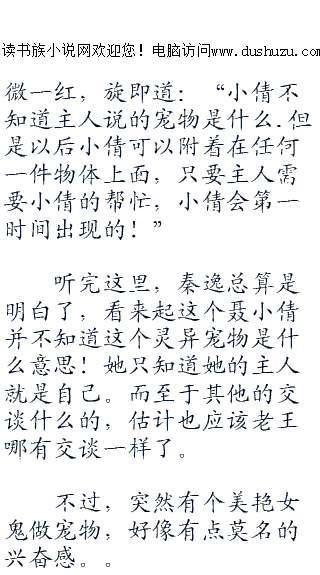 读书族小说网欢迎您！电脑访问www.dushuzu.com
微一红，旋即道：“小倩不
知道主人说的宠物是什么.但
是以后小倩可以附着在任何
一件物体上面，只要主人需
要小倩的帮忙，小倩会第一
时间出现的！”
听完这里，秦逸总算是
明白了，看来起这个聂小倩
并不知道这个灵异宠物是什
么意思！她只知道她的主人
就是自己。而至于其他的交
谈什么的，估计也应该老王
哪有交谈一样了。
不过，突然有个美艳女
鬼做宠物，好像有点莫名的
兴奋感。。